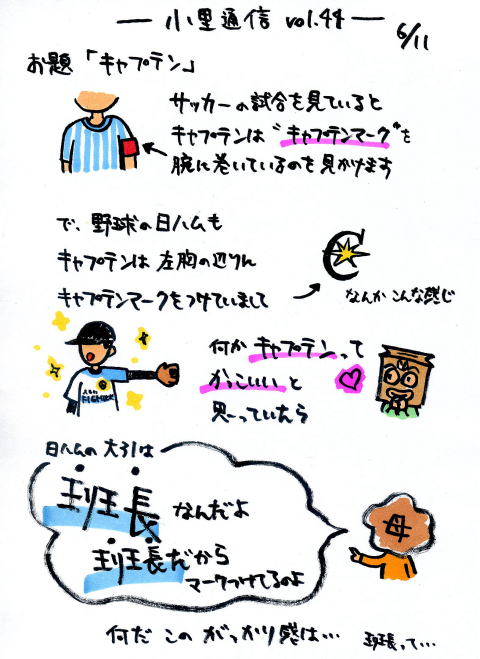 小里通信 vol.44
6/11
お題「キャプテン」
サッカーの試合を見ていると
キャプテンは"キャプテンマーク"を
腕に巻いているのを見かけます
で、野球の日ハムも
キャプテンは左胸の辺りん
キャプテンマークをつけていまして
C
なんかこんな感じ
何かキャプテンって
かっこいいと
思っていたら
日ハムの大引は
班長なんだよ
班長だから
マークつけてるのよ
母
何だこのがっかり感は…
班長って…